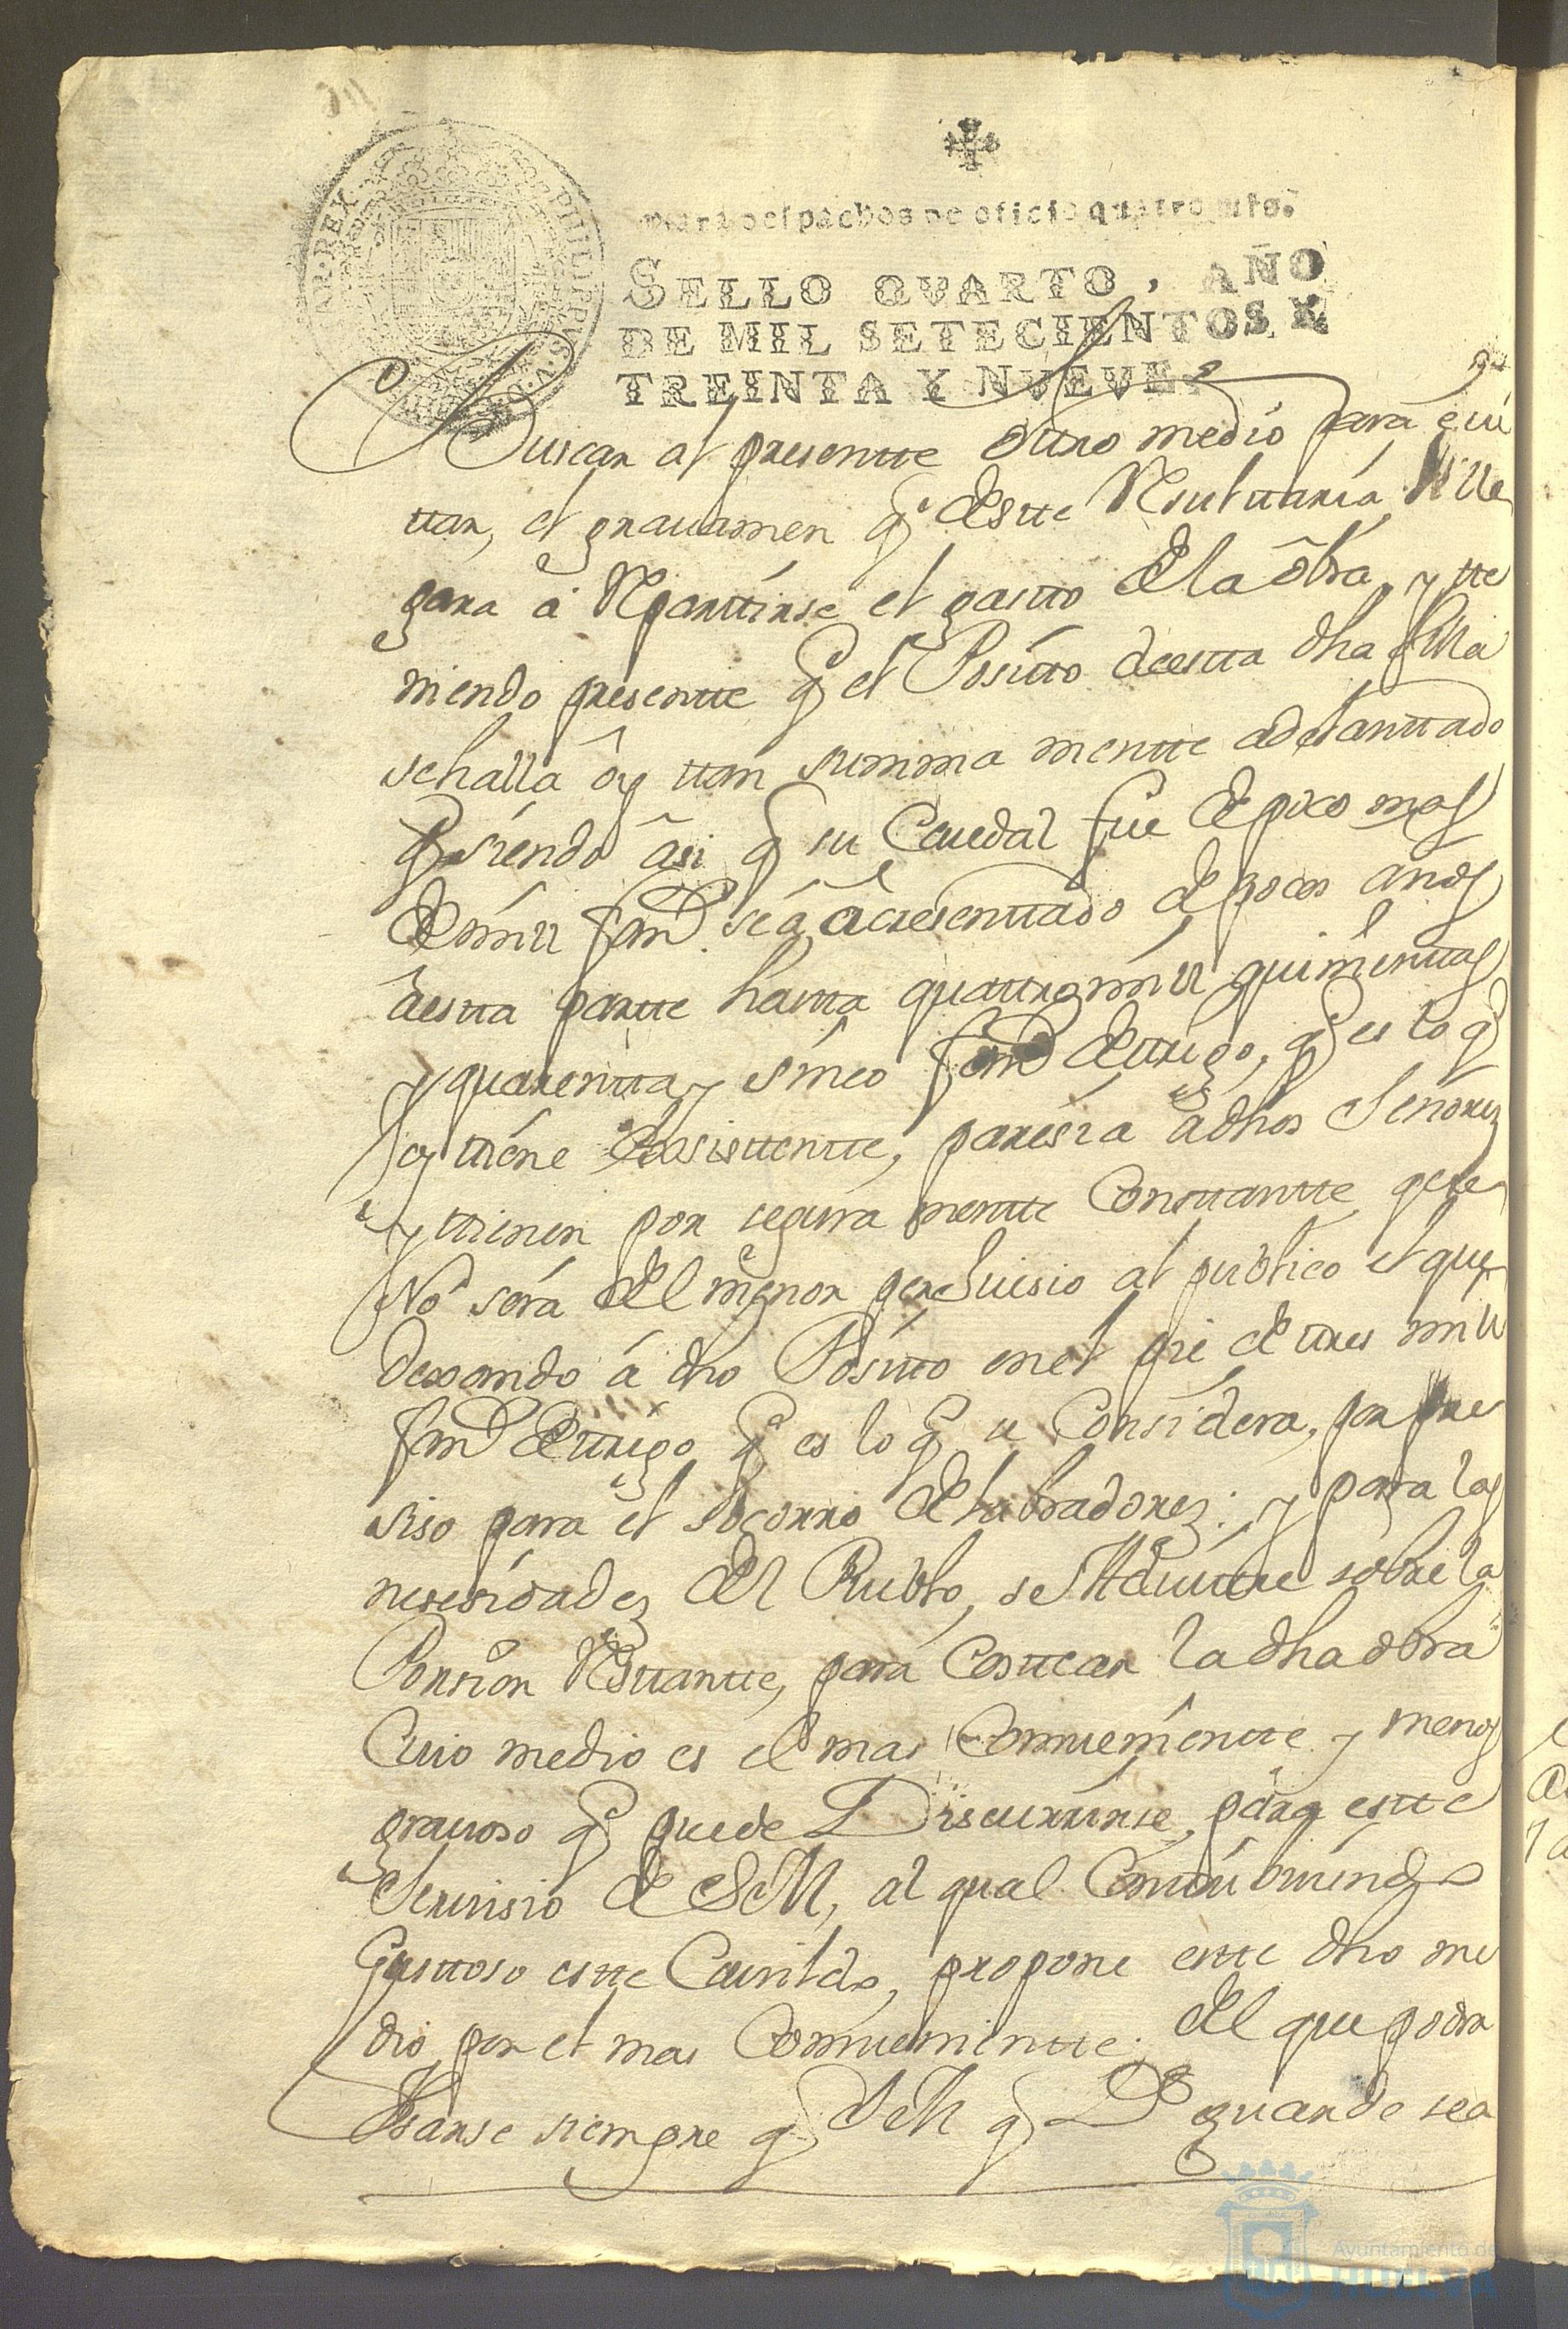 Para despachos de oficio quatro mrs.
SELLO QVARTO, AÑO
DE MIL SETECIENTOS Y
TREINTA Y NVEVE.
PHILIPPVS V D G
REX
Buscar al presentte ottro medio para evi
ttar, el gravamen q̃ deste Resulttaria, si lle
gara â Reparttirse el gastto de la ôbra, y tte
niendo presentte q̃ el Positto deestta dha Villa
sehalla ôy ttan summa mentte adelanttado
q̃ siendo âsi q̃ su Caudal fue de poco mas
de mill fan.s se â âcresenttado de pocos años
âestta partte hastta quattro mill quinienttas
y quarentta y sinco fan.s de ttrigo, q̃ es lo q̃
oy ttiene Exsisttentte, paresia âdhos Señores
y ttienen por segura mentte Consttantte, que
No será del menor perJuisio al publico el que
dexando á dho Positto enel pie de ttres mill
fan.s de ttrigo q̃ es lo q̃ se Considera, por pre
siso para el socorro de labradores; y para las
nesesidades del Pueblo, se sobre la
Porsion Resttantte, para Costtear la dha obra
Cuio medio es el mas Combenientte y menos
gravoso q̃ puede Discurrirse, para estte
Servisio de S M, al qual Conttribuiendo
Gusttoso estte Cavildo, propone estte dho me
dio por el mas Combenientte; del que podra
Usarse siempre q̃ S M q̃ D.s guarde sea
Ayuntamiento de
HUELVA